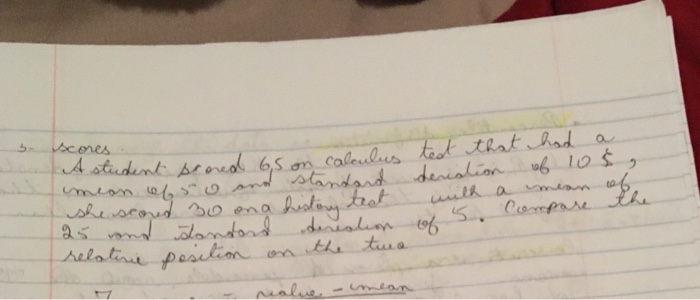 3. scores.
A student scored 65 on calculus test that had a
mean of 50 and standard deviation of 10 $,
she scored 30 on a history test with a mean of
25 and standard deviation of 5. Compare the
relative position on the two
Z = value - mean